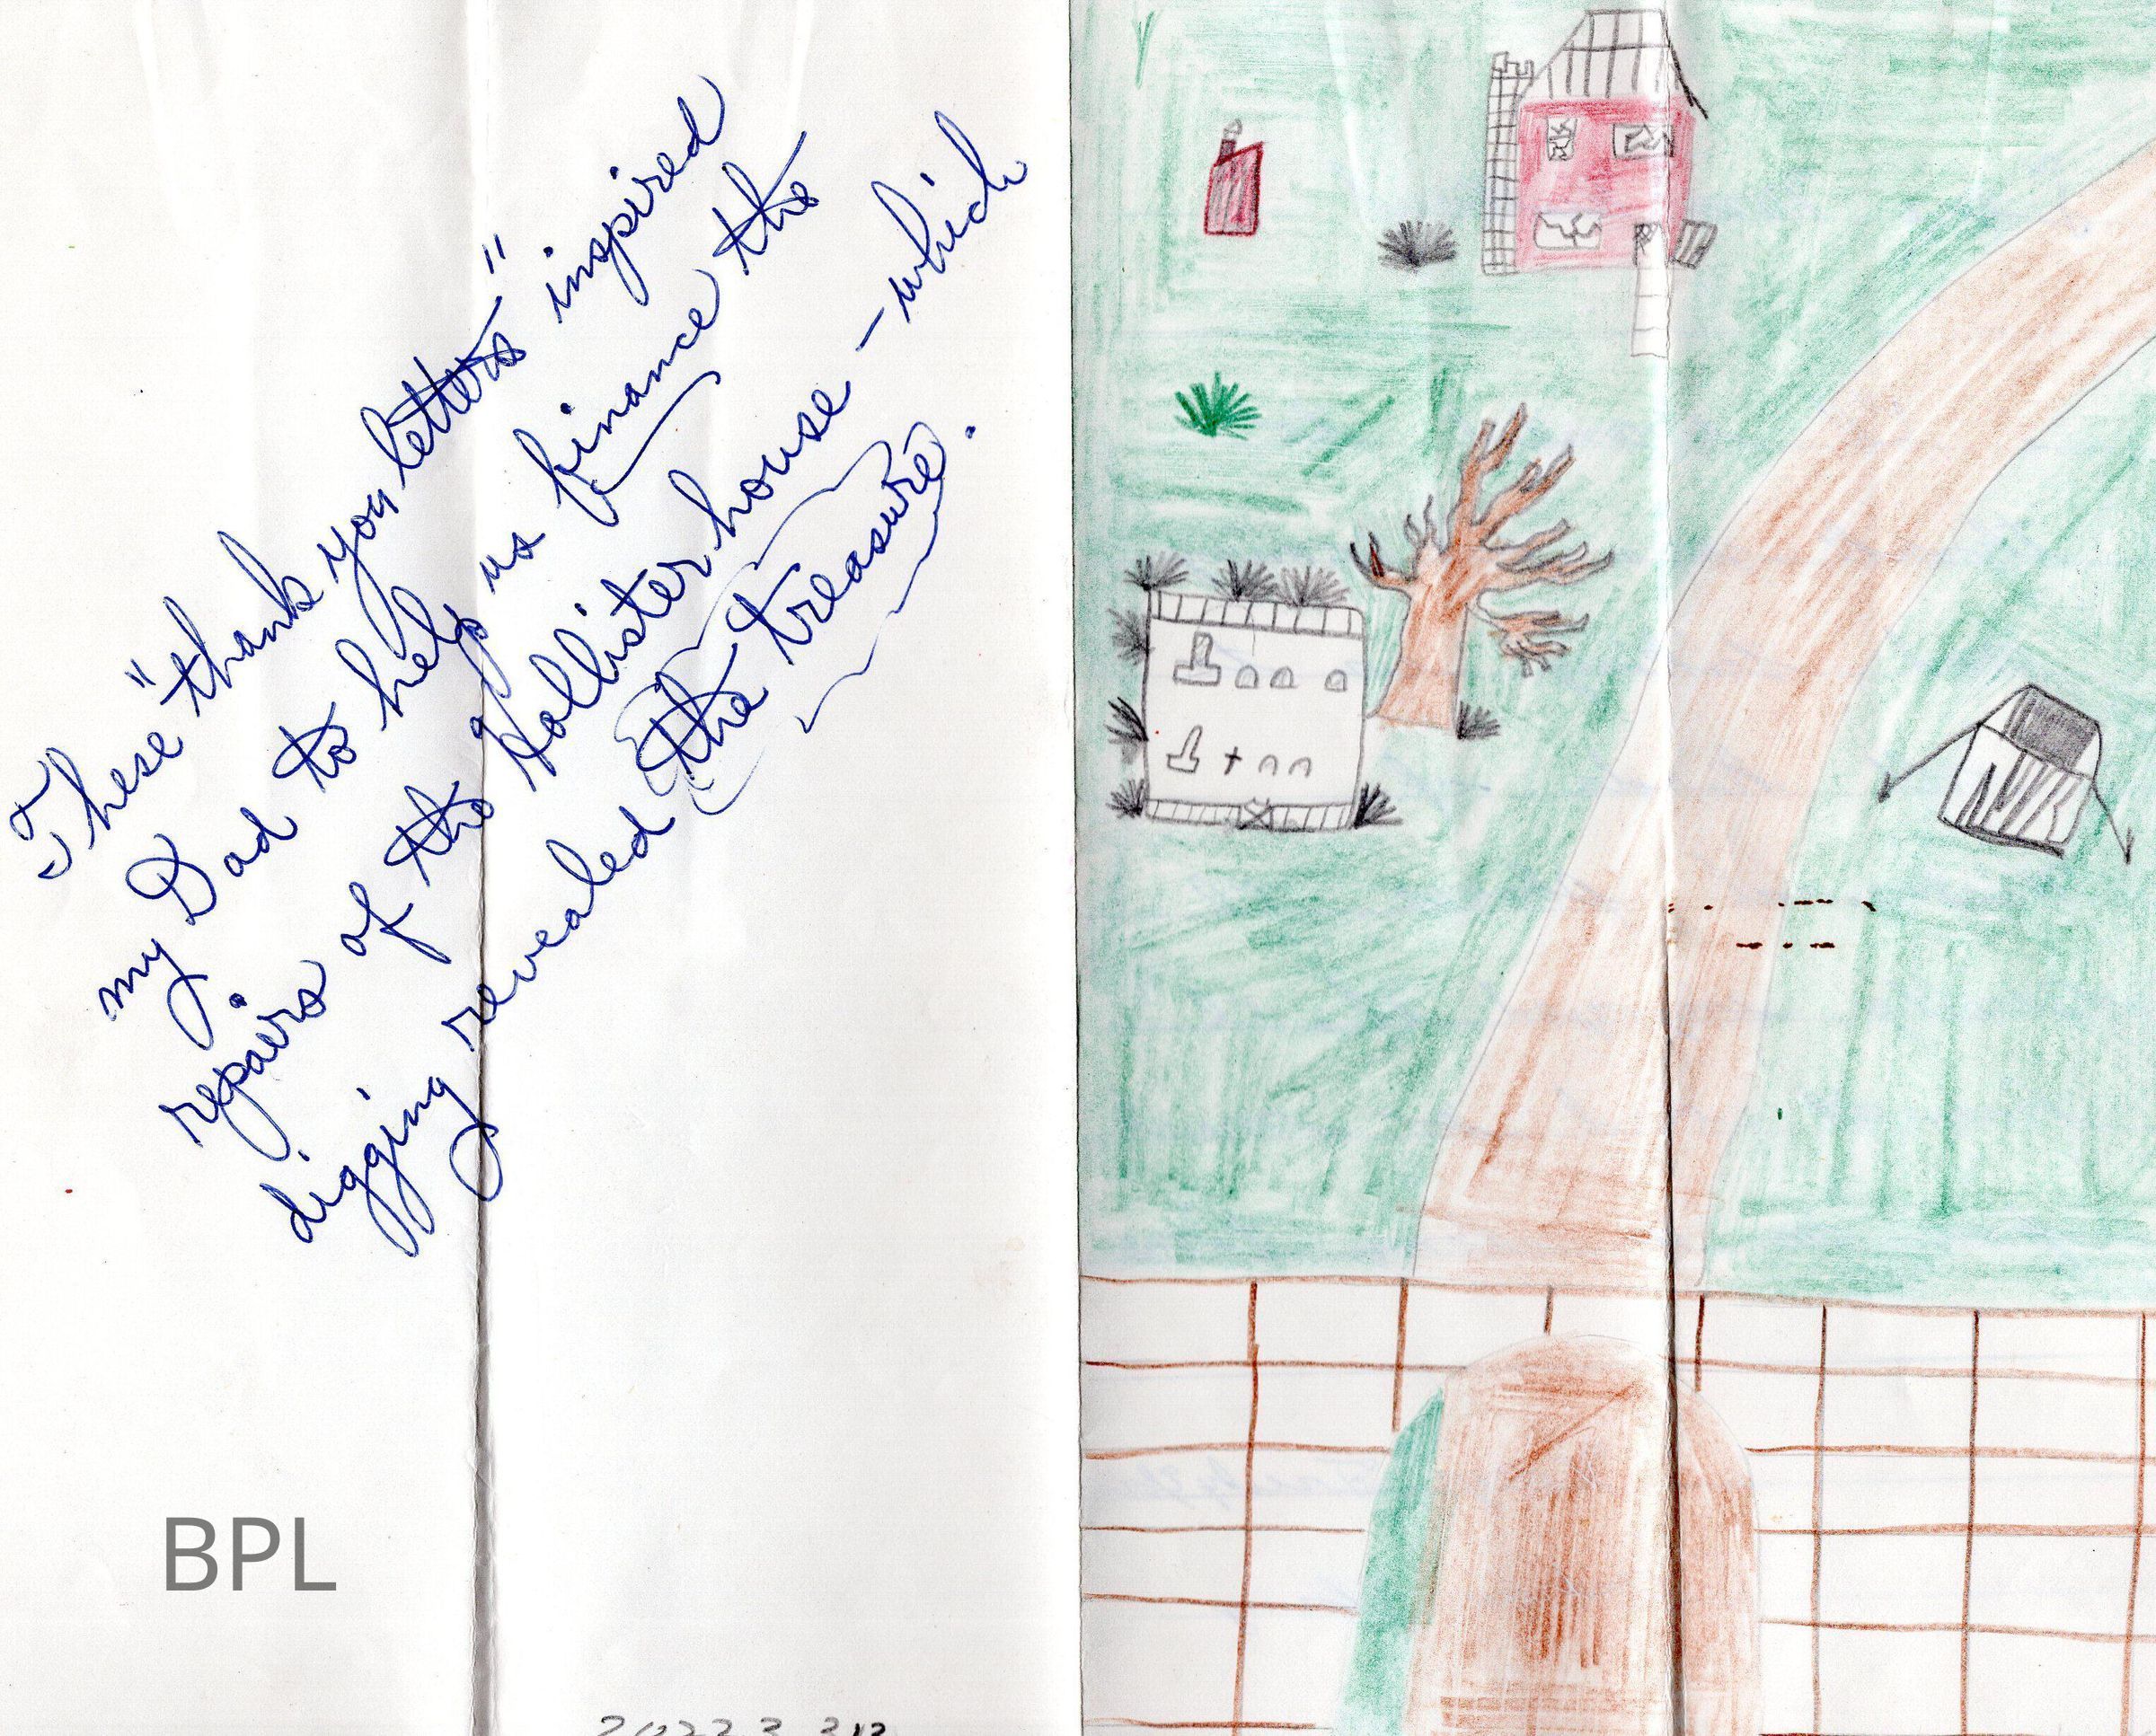 These "thank you letters" inspired
my Dad to help us finance the
repairs of the Hollister house - which
digging revealed the treasure.
BPL